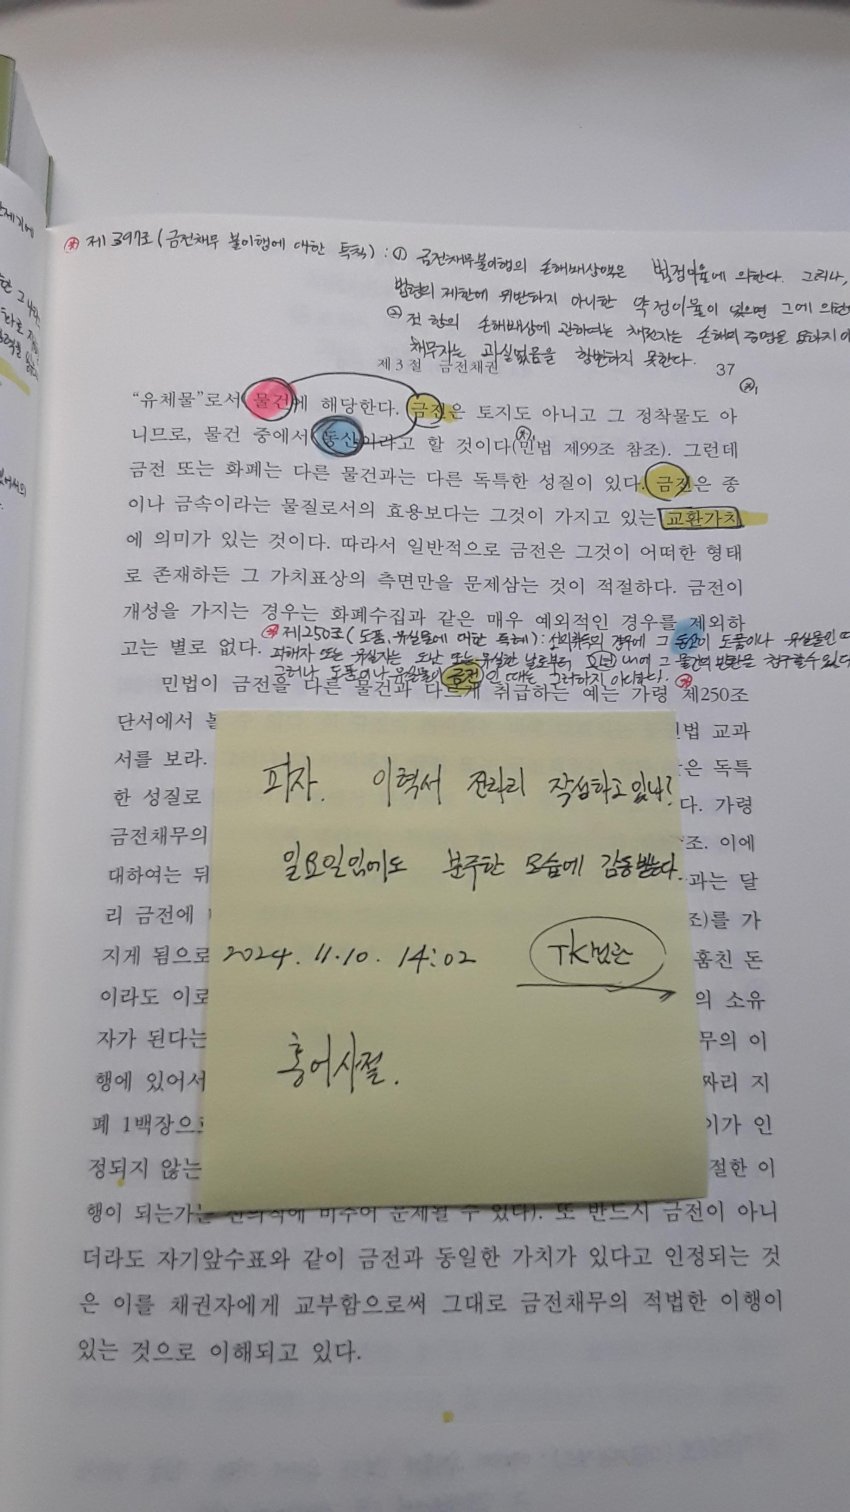 제397조(금전채무 불이행에 대한 특칙) : ① 금전채무불이행의 손해배상액은 법정이율에 의한다. 그러나,
법령의 제한에 위반하지 아니한 약정이율이 있으면 그에 의한
② 전 항의 손해배상에 관하여는 채권자는 손해의 증명을 요하지 아
채무자는 과실없음을 항변하지 못한다.
제 3 절 금전채권 37
“유체물”로서 물건에 해당한다. 금전은 토지도 아니고 그 정착물도 아
니므로, 물건 중에서 동산이라고 할 것이다(민법 제99조 참조). 그런데
금전 또는 화폐는 다른 물건과는 다른 독특한 성질이 있다. 금전은 종
이나 금속이라는 물질로서의 효용보다는 그것이 가지고 있는 교환가치
에 의미가 있는 것이다. 따라서 일반적으로 금전은 그것이 어떠한 형태
로 존재하든 그 가치표상의 측면만을 문제삼는 것이 적절하다. 금전이
개성을 가지는 경우는 화폐수집과 같은 매우 예외적인 경우를 제외하
고는 별로 없다.
제250조(도품, 유실물에 대한 특례) : 선의취득의 경우에 그 동산이 도품이나 유실물인 때
피해자 또는 유실자는 도난 또는 유실한 날로부터 2년내에 그 물건의 반환을 청구할 수 있다
그러나 도품이나 유실물이 금전인 때에는 그러하지 아니하다.
민법이 금전을 다른 물건과 다르게 취급하는 예는 가령 제250조
단서에서 민법 교과
서를 보라. 은 독특
한 성질로 다. 가령
금전채무의 조. 이에
대하여는 뒤 과는 달
리 금전에 조)를 가
지게 됨으로 훔친 돈
이라도 이로 의 소유
자가 된다는 무의 이
행에 있어서 짜리 지
폐 1백장으로 이가 인
정되지 않는 절한 이
피자. 이력서 잔라리 작성하고 있나?
일요일임에도 분주한 모습에 감동받는다.
2024. 11. 10. 14:02 TK법관
홍어사절.
행이 되는가는 신의칙에 비추어 문제될 수 있다). 또 반드시 금전이 아니
더라도 자기앞수표와 같이 금전과 동일한 가치가 있다고 인정되는 것
은 이를 채권자에게 교부함으로써 그대로 금전채무의 적법한 이행이
있는 것으로 이해되고 있다.